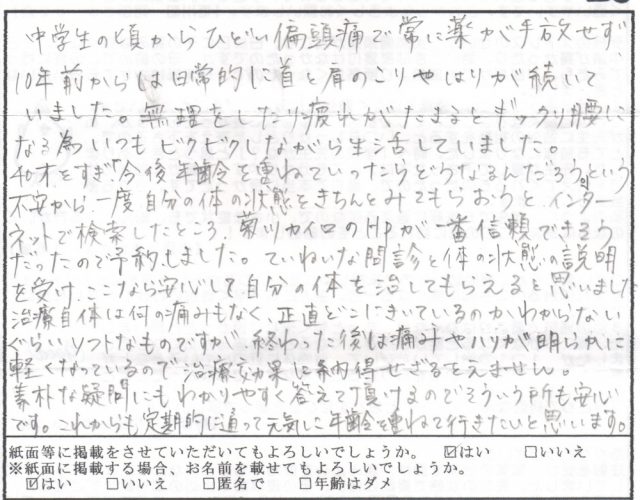 中学生の頃からひどい偏頭痛で常に薬が手放せず
10年前からは日常的に首と肩のこりやはりが続いて
いました。無理をしたり疲れがたまるとギックリ腰に
なる為いつもビクビクしながら生活していました。
40才をすぎ「今後年齢を重ねていったらどうなるんだろう」という
不安から、一度自分の体の状態をきちんとみてもらおうと、インター
ネットで検索したところ、菊リカイロのHPが一番信頼できそう
だったので予約しました。ていねいな問診と体の状態の説明
を受け、ここなら安心して自分の体を治してもらえると思いました
治療自体は何の痛みもなく、正直どこにきいているのかわからない
ぐらいソフトなものですが、終わった後は痛みやハリが明らかに
軽くなっているので治療効果に納得せざるをえません。
素朴な疑問にもわかりやすく答えて頂けるのでそういう所も安心
です。これからも定期的に通って元気に年齢を重ねて行きたいと思います。
紙面等に掲載をさせていただいてもよろしいでしょうか。 ☑はい □いいえ
※紙面に掲載する場合、お名前を載せてもよろしいでしょうか。
☑はい □いいえ □匿名で □年齢はダメ